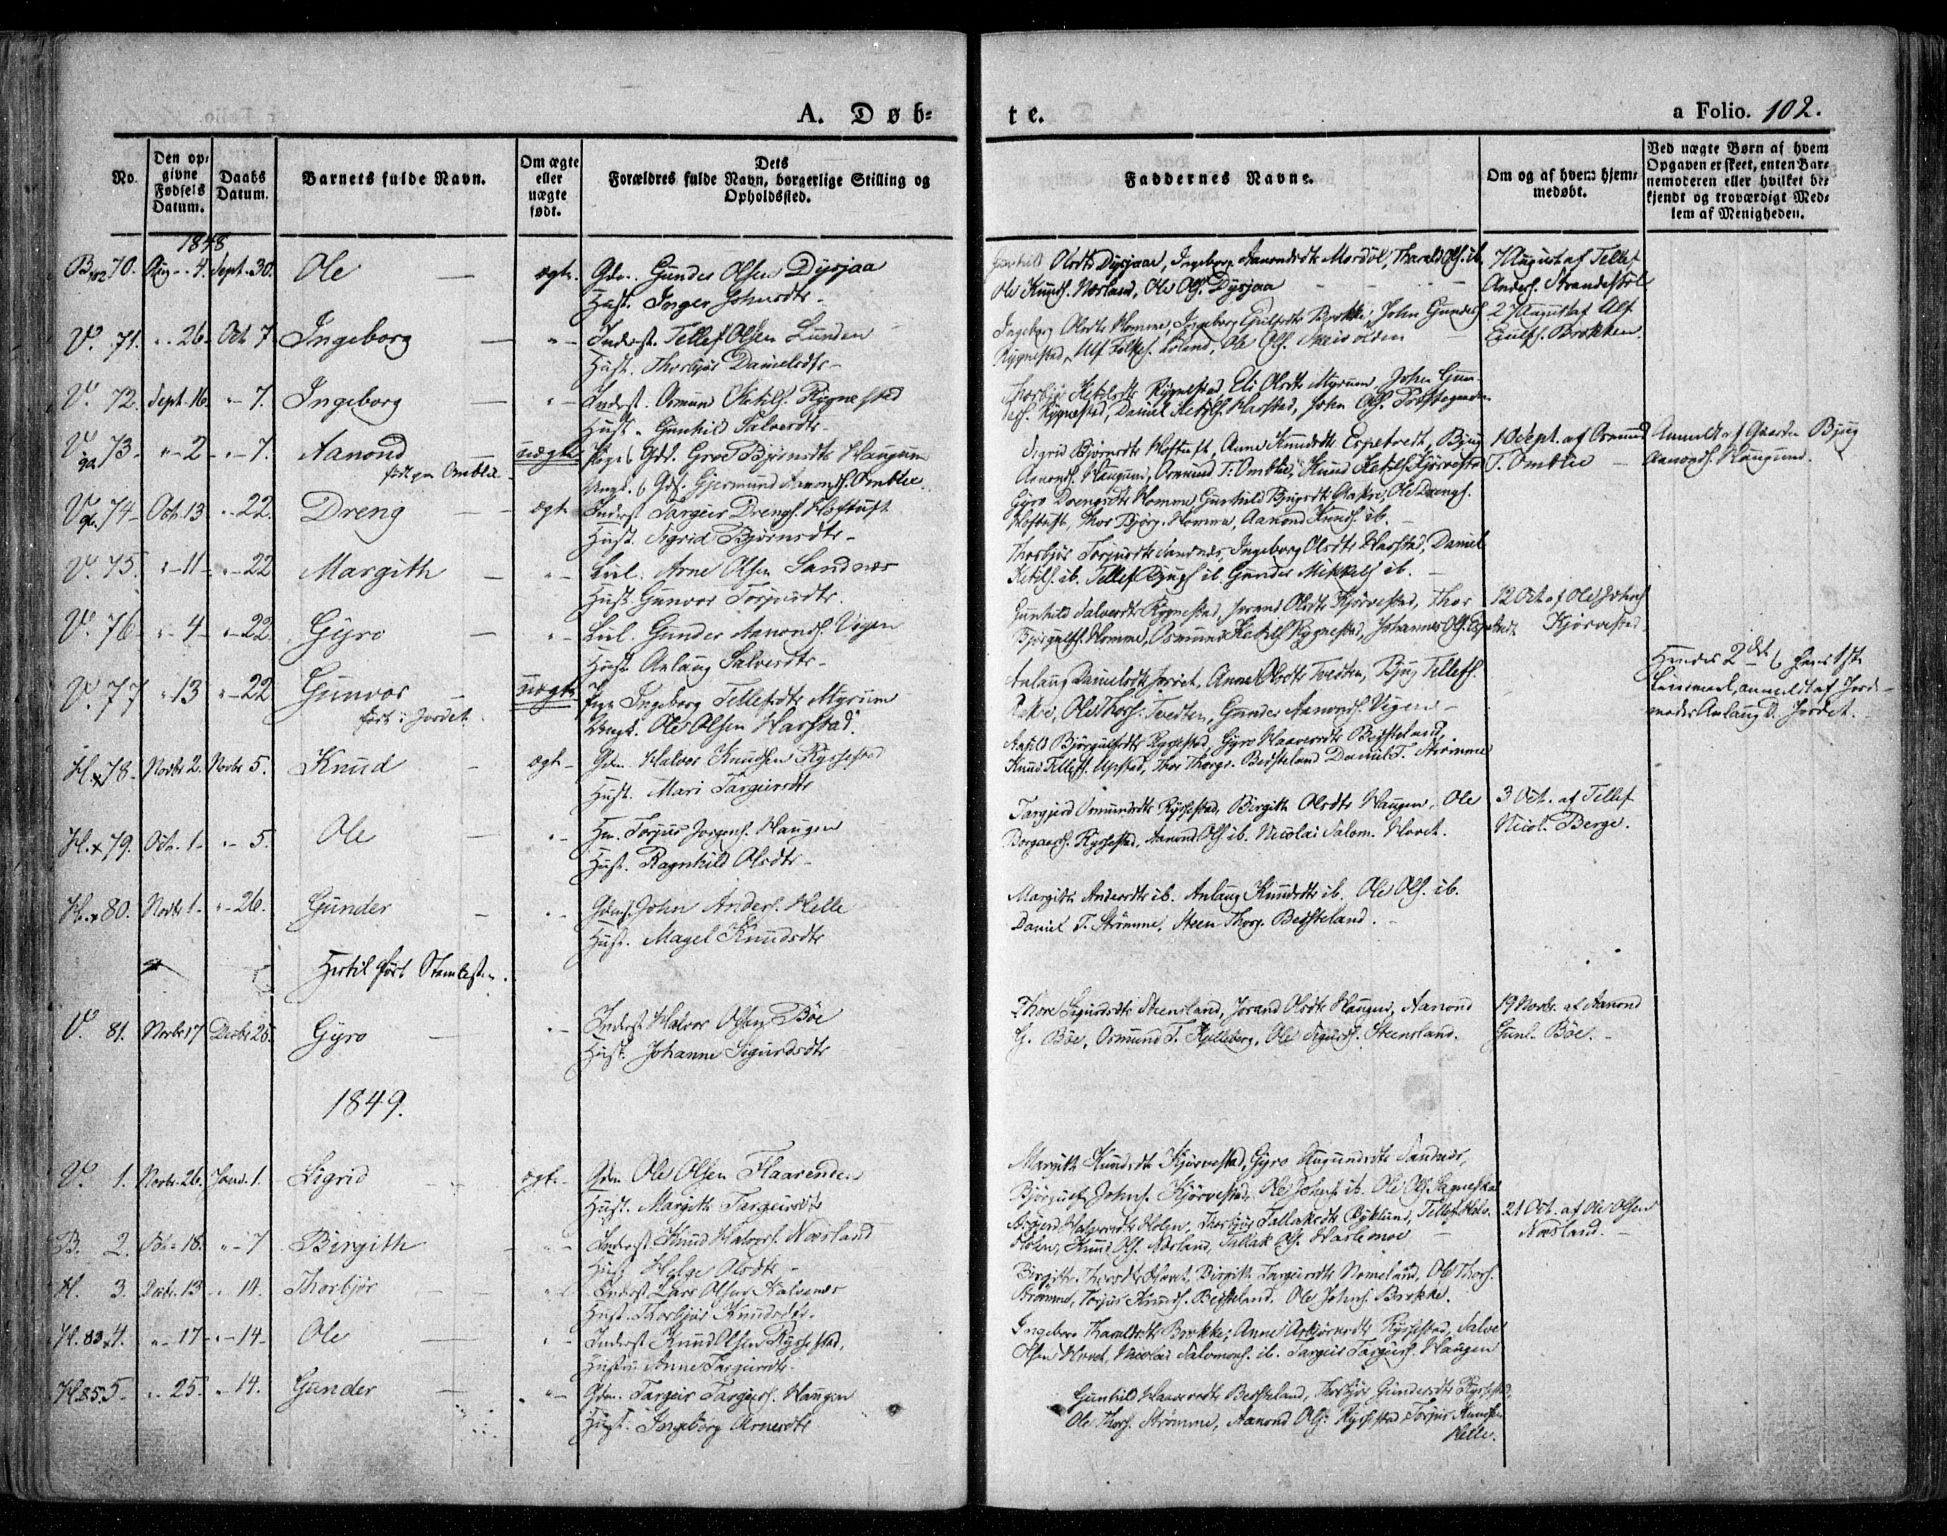 A. Døb=
te.
a Folio. 102.
No.
Den op=
givne
Fødsels
Datum.
Daabs
Datum.
Barnets fulde Navn.
Om ægte
eller
uægte
født.
Dets
Forældres fulde Navn, borgerlige Stilling og
Opholdssted.
Faddernes Navne.
Om og af hvem hjem=
medøbt.
Ved uægte Børn af hvem
Opgaven er skeet, enten Bar=
nemoderen eller hvilket be=
kjendt og troværdigt Med=
lem af Menigheden.
1848
B 70. Aug. 4. Sept. 30. Ole — ægte. Gdm. Gunder Olsen Dysjaa
Hust. Inger Johnsdtr.
Gunhild Olsdtr Dysjaa, Ingeborg Aanondsdtr Mosdøl, Tharald Ols. ib.
Ole Knuds. Næsland, Ole Ols. Dysjaa
7 August af Tellef
Anders. Strandestøl
V. 71. " 26. Oct 7 Ingeborg — " Inderst. Tellef Olsen Lunden
Hust. Thorbjør Danielsdtr
Ingeborg Olsdtr Homme, Ingeborg Eiulfsdtr Brokke, John Gunders.
Rygnestad, Ulf Folkes. Loland, Ole Ols.
27 August af Alf
Eiulfs. Brokken.
V. 72. Sept. 16. " 7. Ingeborg — " Inderst. Osmund Ketils. Rygnestad
Hust. Gunhild Salvesdtr
Thorbjør Ketilsdtr Rygnestad, Eli Olsdtr Myrum, John Gun-
ders. Rygnestad, Daniel Ketils. Harstad, John Ols.
V. 73 " 2 " 7. Aanond — uægte Pige Groe Bjørnsdtr Haugum
født paa Omblie.
Ungk. Gjermund Aanonds. Omblie.
Sigrid Bjørnsdtr Hoftuft, Anne Knudsdtr Espetvedt, Bjug
Aanonds. Haugum, Osmund T. Omblie, Knud Ketils. Kjørvestad
10 Sept. af Osmund
T. Omblie
Anmeldt af Bjug
Aanonds. Haugum.
V. 74 Oct. 13 " 22. Dreng — ægte Inderst Targeir Drengs. Hoftuft
Hust. Sigrid Bjørnsdtr
Gyro Drengsdtr Homme, Gunhild Bjugsdtr Aakre, Ole Drengs.
Hoftuft, Thor Bjørg. Homme, Aanond Knuds. ib.
V. 75. " 11 " 22 Margith — " Arne Olsen Sandnæs
Hust. Gunvor Torjusdtr.
Thorbjør Torjusdtr Sandnæs, Ingeborg Olsdtr Harstad, Daniel
Ketils. ib. Tellef Bjugs. ib. Gunder Mikkels. ib.
V. 76 " 4 " 22. Gyro — " Gunder Aanonds. Vigen
Hust. Anlaug Salvesdtr
Gunhild Salvesdtr Rygnestad, Jorand Olsdtr Kjørvestad, Thor
Bjørgulfs. Homme, Osmund Ketils. Rygnestad, Johannes Ols. Espetvedt
12 Oct. af Ole Johns
Kjørvestad.
V. 77 " 13 " 22 Gunvor — uægte Pige Ingeborg Tellefsdtr Myrum
født i Jordet.
Ungk. Ole Olsen Harstad.
Anlaug Danielsdtr Jorret, Anne Olsdtr Tvedten, Bjug Tellefs.
Ole Thors. Tvedten, Gunder Aanonds. Vigen
Hendes 2det hans 1ste
Leiermaal, anmeldt af Jorde-
moder Anlaug D. Jordet.
H. 78. Novbr 2. Novbr 5. Knud — ægte Gdm. Halvor Knudsen Rysstad
Hust. Mari Targeirsdtr
Aasild Bjørgulfsdtr Rysstad, Gyro Haavorsdtr Besteland,
Knud Tellefs. Upstad, Thor Thorgs. Besteland Daniel T. Strømme
H. 79. Oct. 1 " 5. Ole — " Torjus Jorgens. Haugen
Hust. Ragnhild Olsdtr
Targjerd Osmundsdtr Rysstad, Birgith Olsdtr Haugen, Ole
Borgaars. Rysstad, Aanond Ols. ib. Nicolai Salom. Hovet.
3 Oct. af Tellef
Nicol. Berge.
H. 80. Novbr 1 " 26. Gunder — " Gdm. John Anders. Helle
Hust. Magel Knudsdtr
Margith Andersdtr ib. Anlaug Knudsdtr ib. Ole Ols. ib.
Daniel T. Strømme, Steen Thorg. Besteland.
Hertil ført
V. 81. Novbr 17 Decbr 25. Gyro — " Inderst Halvor Olsen Bøe
Hust. Johanne Sigurdsdtr
Thore Sigurdsdtr Steensland, Jorand Olsdtr Haugen, Aanond
G. Bøe, Osmund T. Kjelleberg, Ole Sigurds. Steensland.
19 Novbr. af Aanond
Gunl. Bøe.
1849.
V. 1. Novbr. 26. Janr. 1. Sigrid — ægte Gdm. Ole Olsen Flaarenden
Hust. Margith Targeirsdtr
Margith Knudsdtr Kjørvestad, Gyro Augundsdtr Sandnæs,
Bjørgulf Johns. Kjørvestad, Ole Johns. ib. Ole Ols.
B. 2. Oct. 18. " 7 Birgith — " Inderst Knud Halvors. Næsland
Hust. Helge Olsdtr
Halvorsdtr Holen, Thorbjør Tallaksdtr Bykland, Tellef Halv.
Holen, Knud Ols. Næsland, Tallak Ols. Hartemoe
21 Oct. af Ole Olsen
Næsland.
H. 3. Decbr. 13 " 14. Thorbjør — " Inderst. Lars Olsen Kalvenes
Hust. Thorbjør Knudsdtr.
Birgith Thorsdtr Hovet, Birgith Targeirsdtr Nomeland, Ole Thors.
Strømme, Torjus Knuds. Besteland. Ole Johns. Brokke.
H. 83 4. " 17 " 14. Ole — " Inderst Knud Olsen Rysstad,
Hustru Anne Targeirsdtr
Ingeborg Tharaldsdtr Brokke, Anne Asbjørnsdtr Rysstad, Salve
Olsen Hovet, Nicolai Salomons. ib. Targeir Targeirs. Haugen
H. 85 5 " 25. " 14. Gunder — " Gdm. Targeir Targeirs. Haugen
Hust. Ingeborg Arnesdtr
Gunhild Haavorsdtr Besteland, Thorbjør Gundersdtr Rysstad,
Ole Thors. Strømme, Aanond Ols. Rysstad, Torjus Knudsen
Helle.